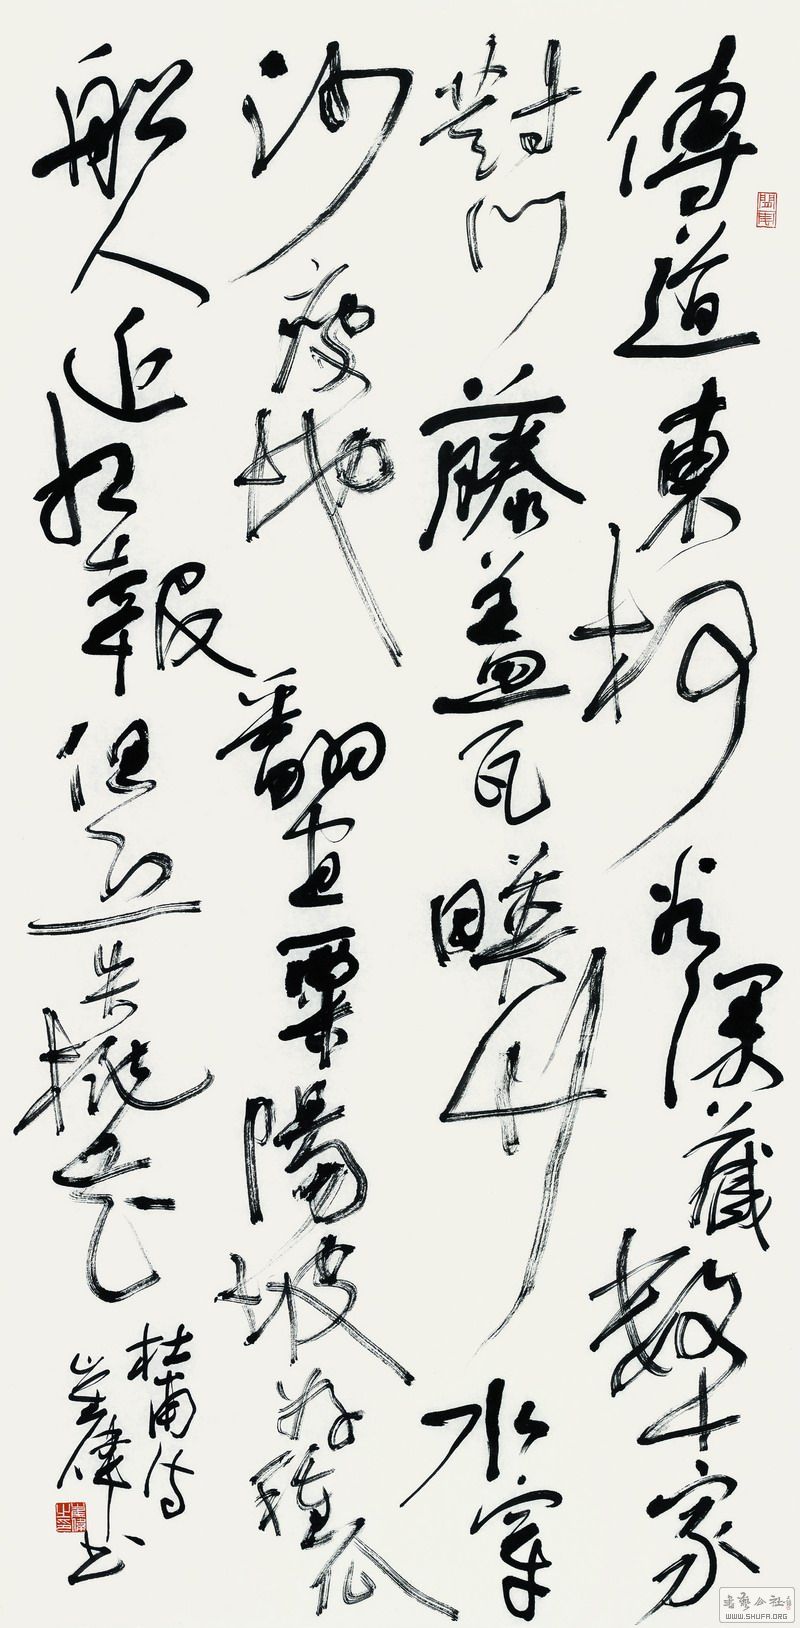 傳道東柯谷深藏數十家
對門藤蓋瓦映竹水穿
沙瘦地翻宜粟陽坡可種瓜
船人近相報但恐失桃花
杜甫詩
崔偉书
WWW.SHUFA.ORG